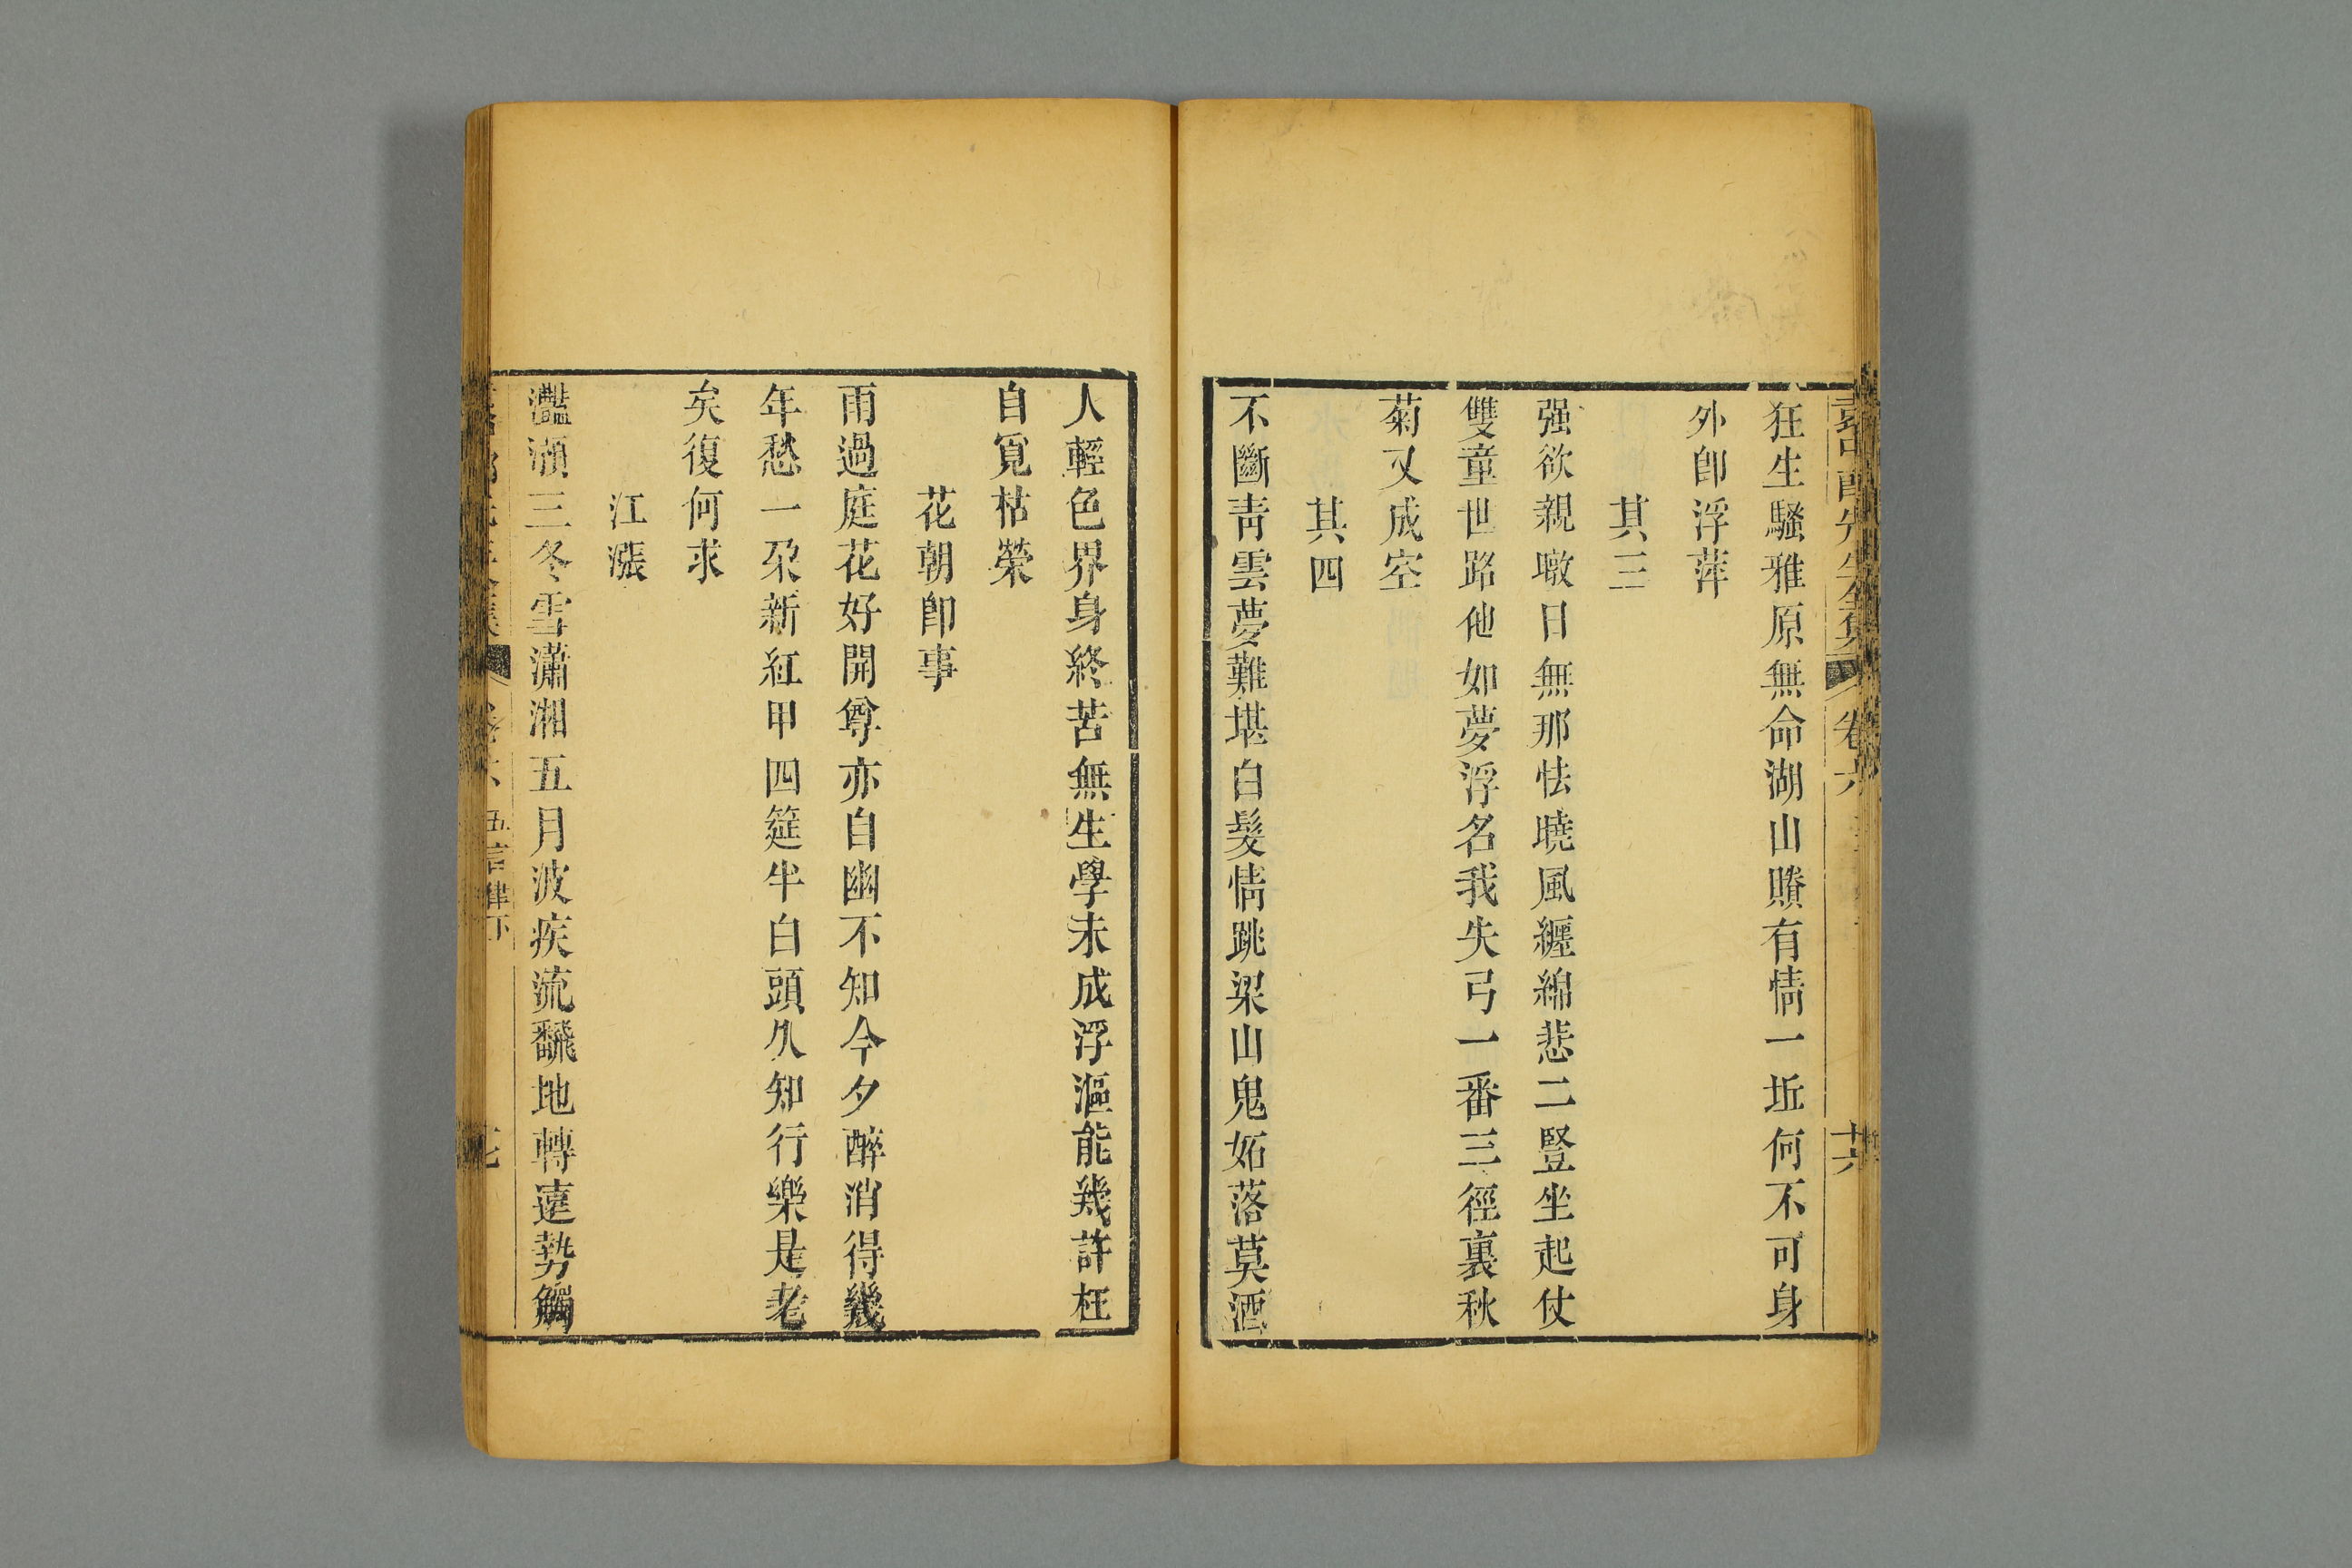 先生全集 卷六 十六
狂生騷雅原無命湖山賸有情一坵何不可身
外卽浮萍
其三
强欲親暾日無那怯曉風纏綿悲二豎坐起仗
雙童世路他如夢浮名我失弓一番三徑裏秋
菊又成空
其四
不斷靑雲夢難堪白髮情跳梁山鬼妬落莫酒
人輕色界身終苦無生學未成浮漚能幾許枉
自覓枯榮
花朝卽事
雨過庭花好開尊亦自幽不知今夕醉消得幾
年愁一朶新紅甲四筵半白頭久知行樂是老
矣復何求
江漲
灩澦三冬雪瀟湘五月波疾流飜地轉遠勢觸
五言律下